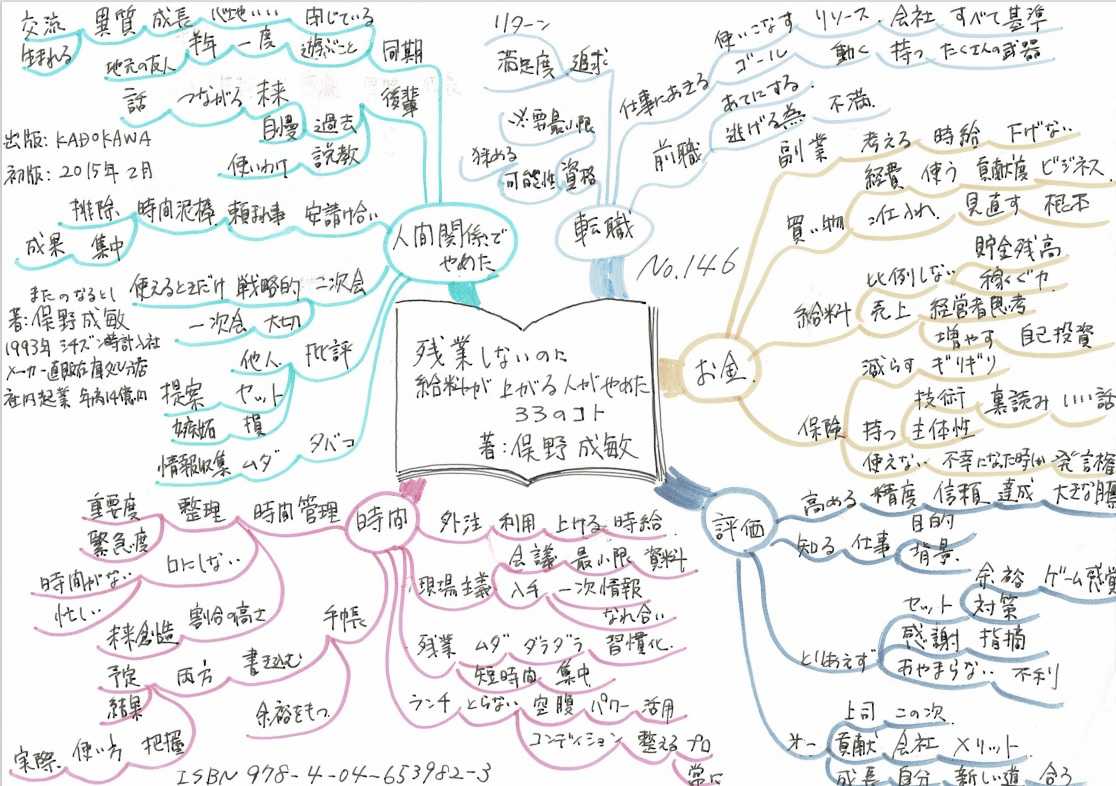 残業しないのに
給料が上がる人がやめた
33のコト
著:俣野成敏
No.146
出版:KADOKAWA
初版:2015年2月
またのなるとし
著:俣野成敏
1993年 シチズン時計入社
メーカー直販在庫処分店
社内起業 年商14億円
人間関係で
やめた
同期
閉じている 心地いい 成長 異質 交流
生まれる
遊ぶこと 一度 半年
地元の友人
後輩
未来 つながる 話
過去 自慢
説教 使いわけ
安請け合い 頼まれ事 時間泥棒 排除
集中 成果
二次会 戦略的 使えるときだけ
大切 一次会
批評 他人
セット 提案
損 嫉妬
タバコ ムダ 情報収集
転職
追求 満足度
リターン
資格 可能性 狭める
※要最小限
仕事にあきる
使いこなす リソース 会社 すべて基準
ゴール 動く 持つ たくさんの武器
前職
あてにする
逃げる為 不満
お金
副業 考える 時給 下げない
買い物
経費 使う 貢献度 ビジネス
仕入れ 見直す 根本
給料
比例しない 貯金残高
稼ぐ力
売上 経営者思考
増やす 自己投資
保険
減らす ギリギリ
持つ 技術 裏読み いい話
主体性
使えない 不幸になった時しか 発言権
評価
高める 精度 信頼 達成 大きな
知る 仕事 目的
背景
とりあえず
セット 余裕 ゲーム感覚
対策
感謝 指摘
あやまらない 不利
オー
上司 この次
貢献 会社 メリット
成長 自分 新しい道 合う
時間
時間管理 整理 重要度
緊急度
口にしない 時間がない
忙しい
割合の高さ 未来創造
手帳
書き込む 両方 予定
結果
把握 使い方 実際
余裕をもつ
外注 利用 上げる 時給
現場主義
会議 最小限 資料
入手 一次情報
なれ合い
残業 ムダ ダラダラ 習慣化
短時間 集中
ランチ とらない 空腹 パワー 活用
コンディション 整える プロ
常に
ISBN 978-4-04-653982-3